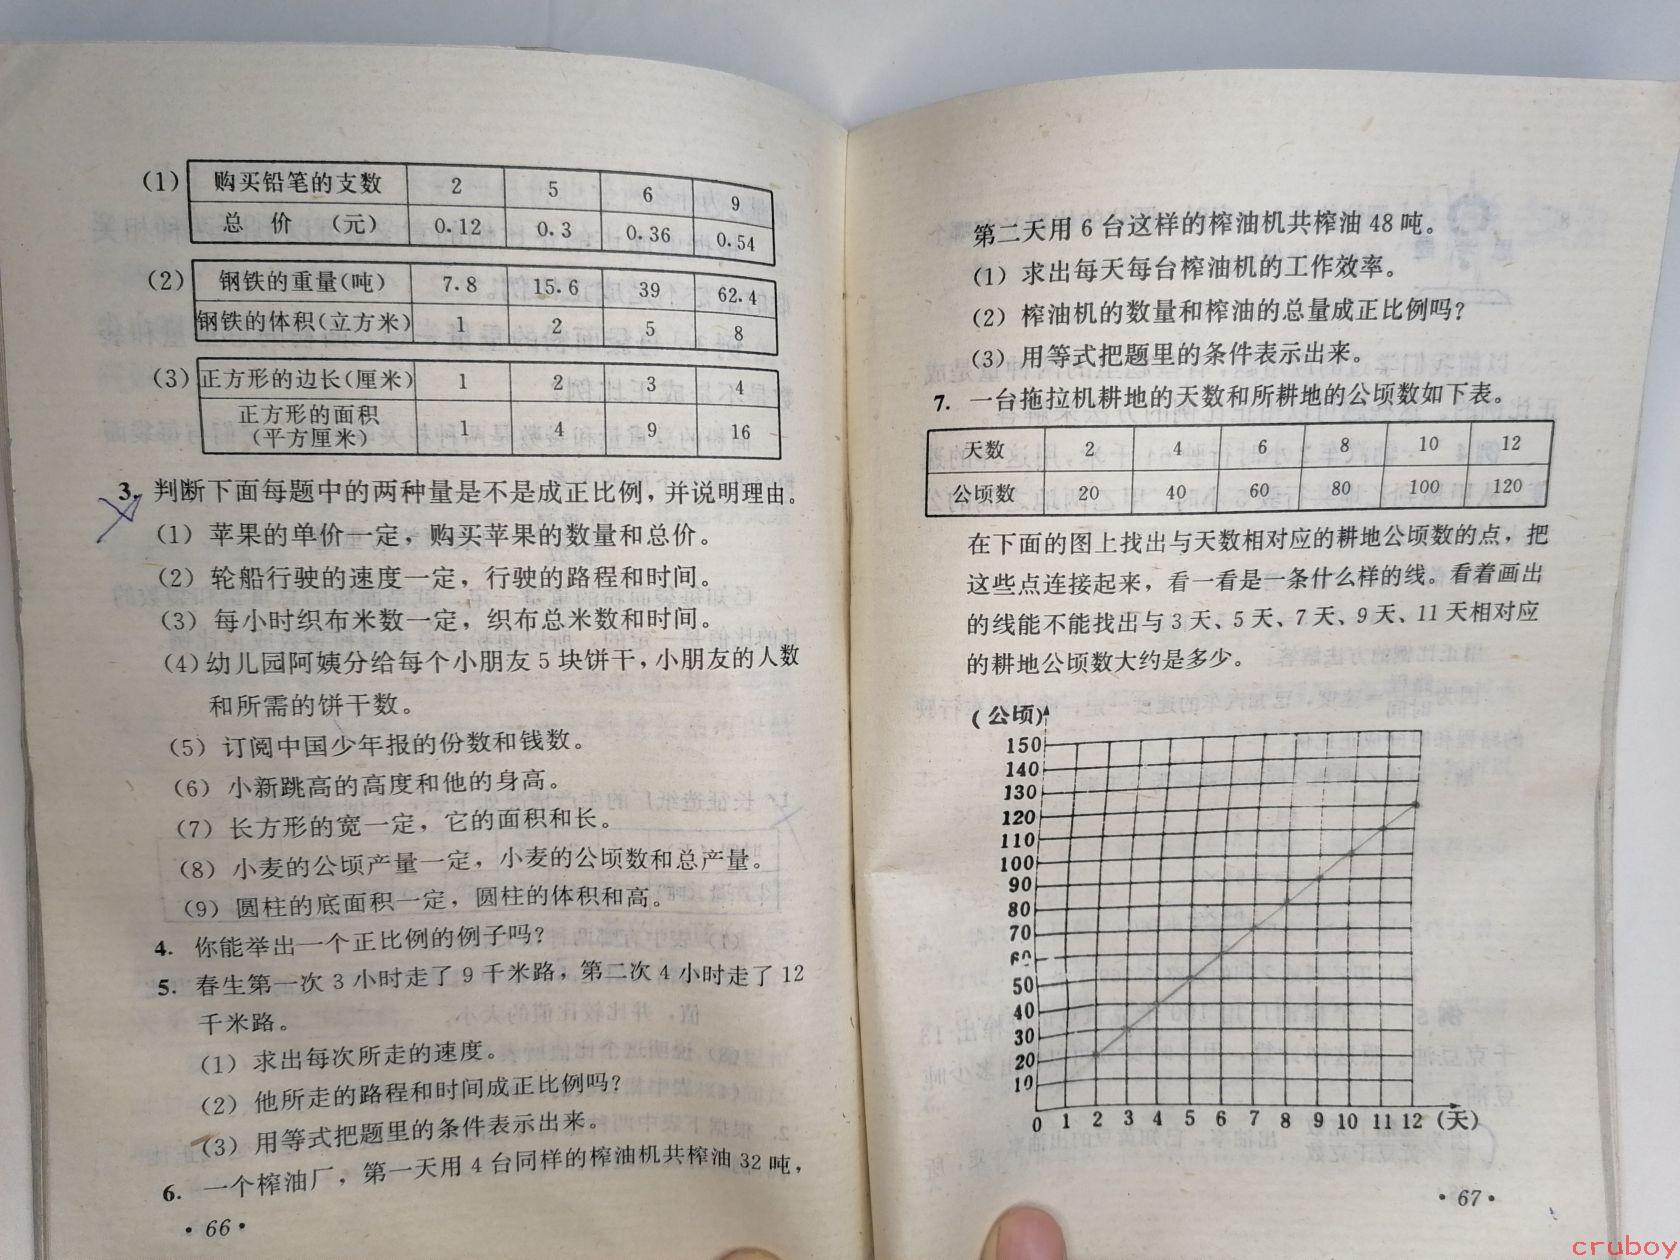 (1) 购买铅笔的支数 2 5 6 9
总 价 (元) 0.12 0.3 0.36 0.54
(2) 钢铁的重量(吨) 7.8 15.6 39 62.4
钢铁的体积(立方米) 1 2 5 8
(3) 正方形的边长(厘米) 1 2 3 4
正方形的面积
(平方厘米) 1 4 9 16
3. 判断下面每题中的两种量是不是成正比例，并说明理由。
(1) 苹果的单价一定，购买苹果的数量和总价。
(2) 轮船行驶的速度一定，行驶的路程和时间。
(3) 每小时织布米数一定，织布总米数和时间。
(4) 幼儿园阿姨分给每个小朋友 5 块饼干，小朋友的人数
和所需的饼干数。
(5) 订阅中国少年报的份数和钱数。
(6) 小新跳高的高度和他的身高。
(7) 长方形的宽一定，它的面积和长。
(8) 小麦的公顷产量一定，小麦的公顷数和总产量。
(9) 圆柱的底面积一定，圆柱的体积和高。
4. 你能举出一个正比例的例子吗？
5. 春生第一次 3 小时走了 9 千米路，第二次 4 小时走了 12
千米路。
(1) 求出每次所走的速度。
(2) 他所走的路程和时间成正比例吗？
(3) 用等式把题里的条件表示出来。
6. 一个榨油厂，第一天用 4 台同样的榨油机共榨油 32 吨，
· 66 ·
第二天用 6 台这样的榨油机共榨油 48 吨。
(1) 求出每天每台榨油机的工作效率。
(2) 榨油机的数量和榨油的总量成正比例吗？
(3) 用等式把题里的条件表示出来。
7. 一台拖拉机耕地的天数和所耕地的公顷数如下表。
天数 2 4 6 8 10 12
公顷数 20 40 60 80 100 120
在下面的图上找出与天数相对应的耕地公顷数的点，把
这些点连接起来，看一看是一条什么样的线。看着画出
的线能不能找出与 3 天、5 天、7 天、9 天、11 天相对应
的耕地公顷数大约是多少。
(公顷)
150
140
130
120
110
100
90
80
70
60
50
40
30
20
10
0 1 2 3 4 5 6 7 8 9 10 11 12 (天)
· 67 ·
cruboy